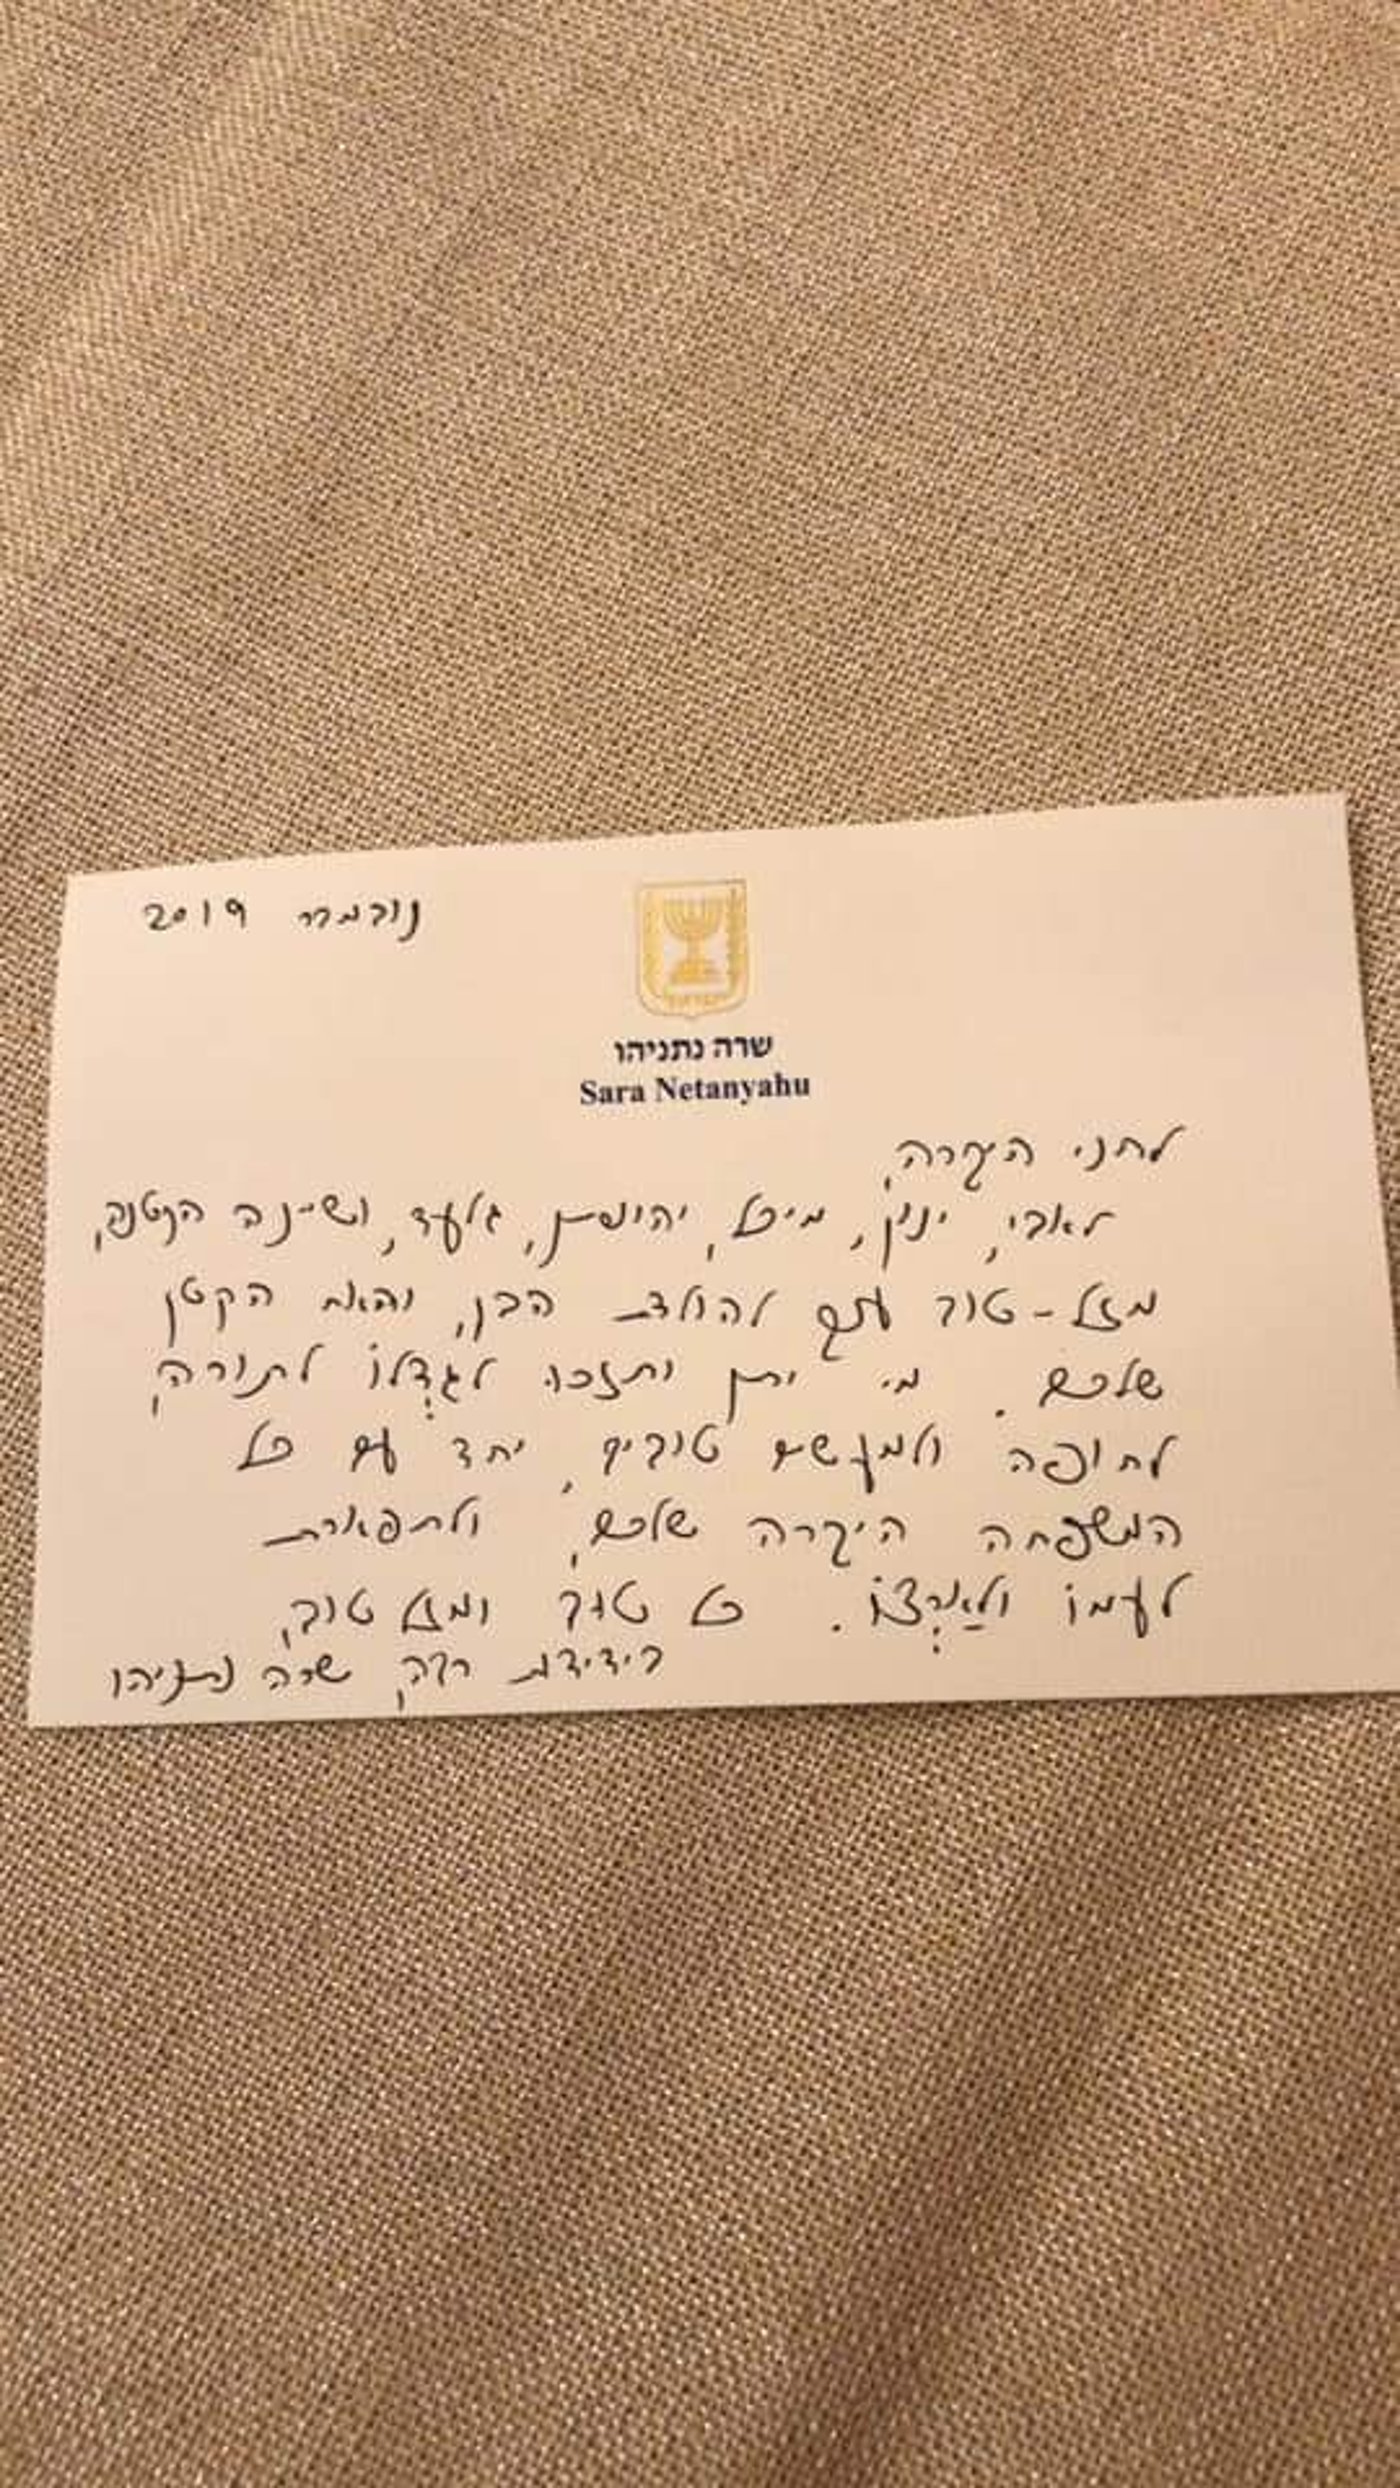 נובמבר 2019
ישראל
שרה נתניהו
Sara Netanyahu
לחני היקרה,
לאבי, ינון, מיכל, יהונתן, גלעד, ושיינה הקטנה,
מזל-טוב ענק להולדת הבן, והאח הקטן
שלכם. מי יתן ותזכו לגדְלוֹ לתורה,
לחופה ולמעשים טובים, יחד עם כל
המשפחה היקרה שלכם, ולתפארת
לעמוֹ ולאַרְצוֹ. כל טוב ומזל טוב,
בידידות רבה, שרה נתניהו